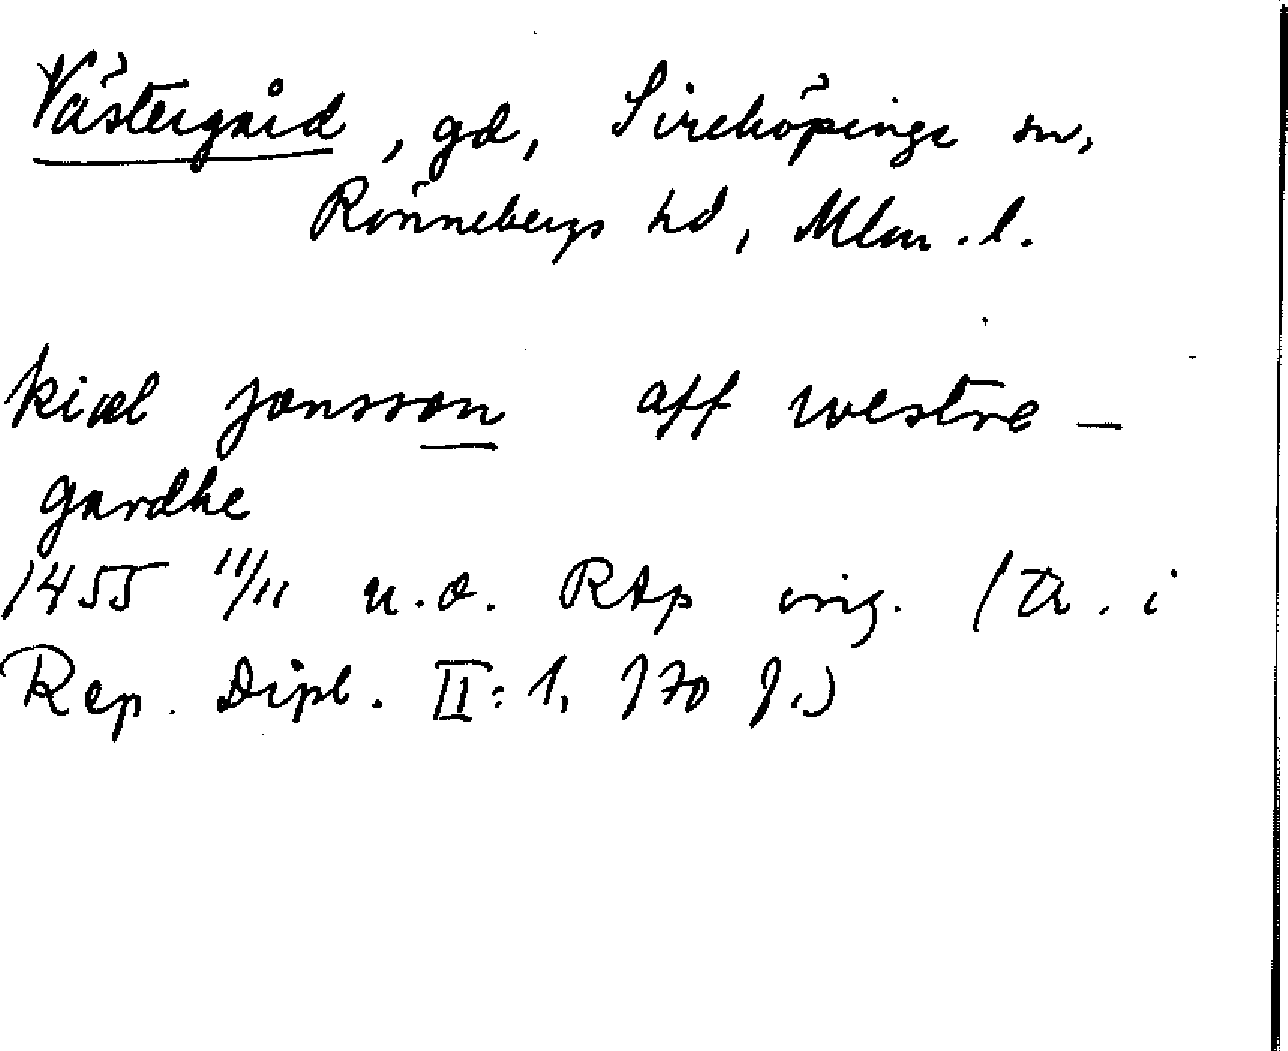 Västergård, gd, Sireköpinge sn,
Rönnebergs hd, Mlm. l.
kiæl jønssøn aff westre-
gardhe
1455 11/11 u.o. RAp orig. (tr. i
Rep. Dipl. II: 1, 170 f.)